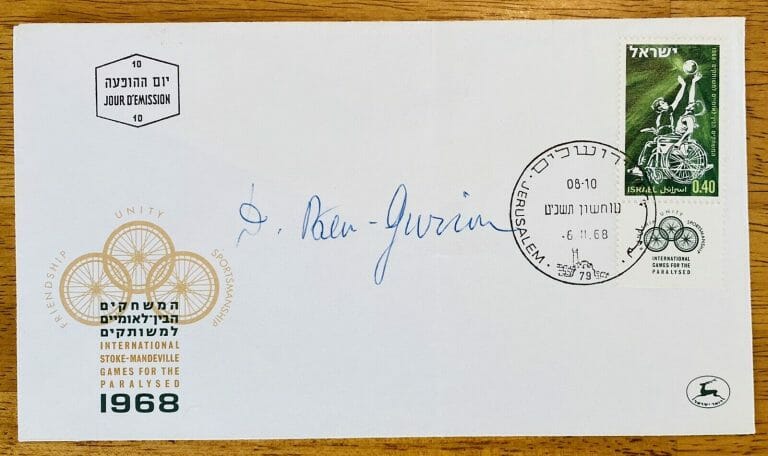 10
יום ההופעה
JOUR D'EMISSION
10
ישראל
ISRAEL اسرائيل 0.40
ירושלים
08-10
תשכ"ט
-6 11.68
JERUSALEM
79
D. Ben-Gurion
FRIENDSHIP UNITY SPORTSMANSHIP
המשחקים
הבין־לאומיים
למשותקים
INTERNATIONAL
STOKE-MANDEVILLE
GAMES FOR THE
PARALYSED
1968
UNITY
SPORTSMANSHIP
INTERNATIONAL
GAMES FOR THE
PARALYSED